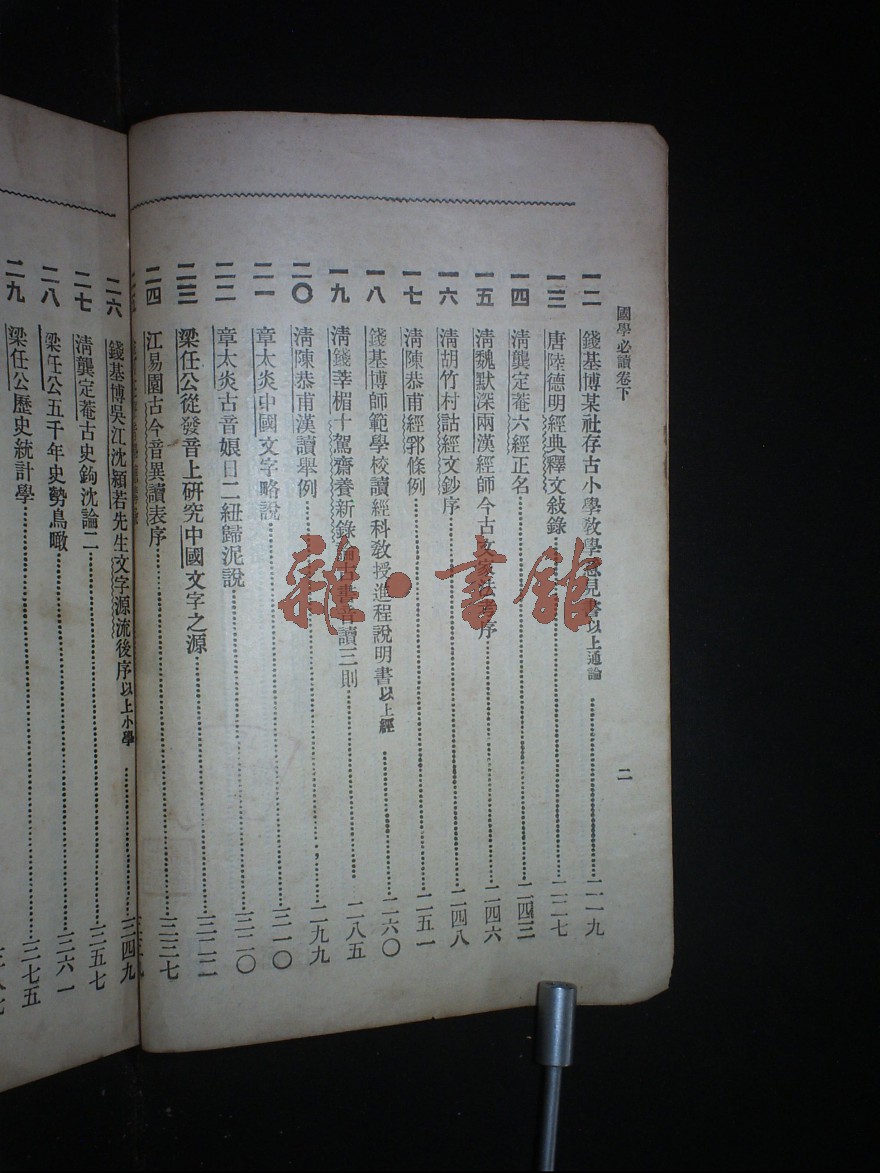 國學必讀卷下
二
一二 錢基博某社存古小學教學意見書以上通論 二一九
一三 唐陸德明經典釋文敍錄 二二七
一四 清龔定菴六經正名 二四三
一五 清魏默深兩漢經師今古文家法考序 二四六
一六 清胡竹村詁經文鈔序 二四八
一七 清陳恭甫經郛條例 二五一
一八 錢基博師範學校讀經科教授進程說明書以上經 二六〇
一九 清錢莘楣十駕齋養新錄論古書音讀三則 二八五
二〇 清陳恭甫漢讀舉例 二九九
二一 章太炎中國文字略說 三一〇
二二 章太炎古音娘日二紐歸泥說 三二〇
二三 梁任公從發音上研究中國文字之源 三二二
二四 江易園古今音異讀表序 三三七
二六 錢基博吳江沈穎若先生文字源流後序以上小學 三四九
二七 清龔定菴古史鉤沈論二 三五七
二八 梁任公五千年史勢鳥瞰 三六一
二九 梁任公歷史統計學 三七五
雜·書館